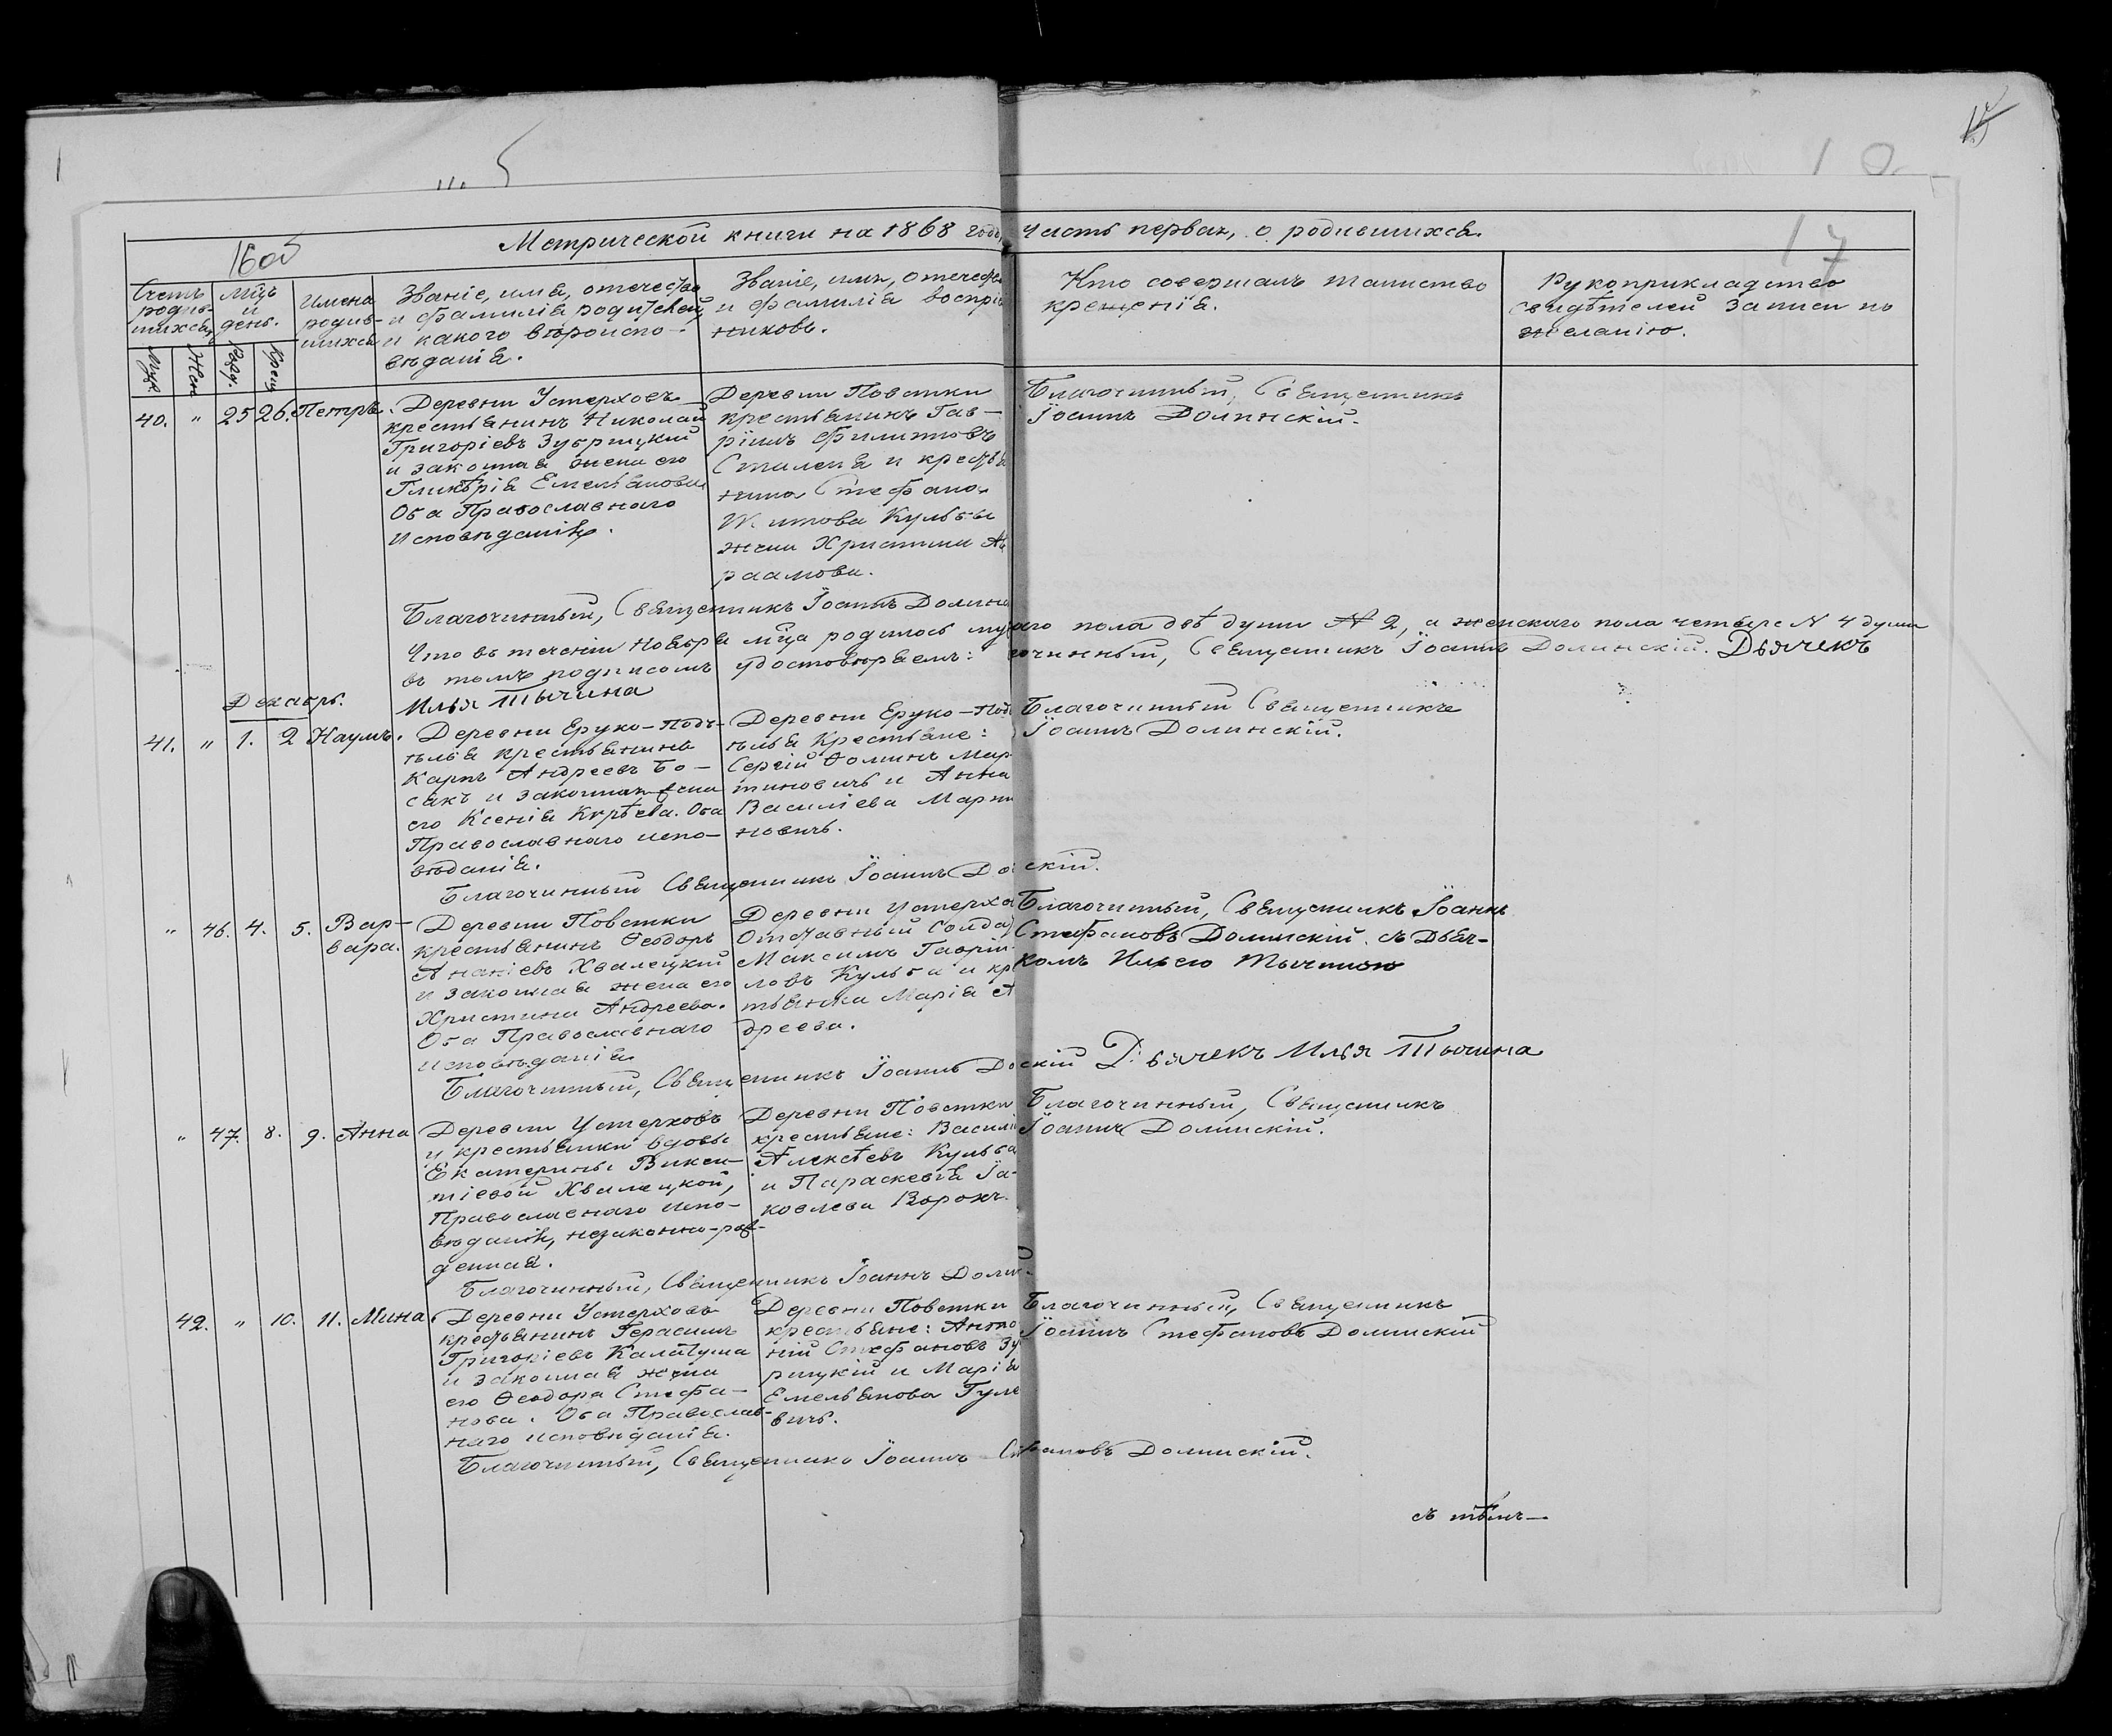 5
10
17
1605
Метрической книги на 1868 годъ, часть первая, о родившихся.
Счетъ родив-шихся.
Мцъ и день.
Имена родив-шихся
Званіе, имя, отечество
и фамилія родителей,
и какого вѣроиспо-
вѣданія.
Званіе, имя, отечество
и фамилія воспріе
никовъ.
Кто совершалъ таинство
крещенія.
Рукоприкладство
свидѣтелей записи по
желанію.
Муж.
Жен.
Рожд.
Крещ.
40. " 25 26. Петръ.
Деревни Устерховъ
крестьянинъ Николай
Григоріевъ Зубрицкій
и законная жена его
Гликѣрія Емельянова
Оба Православнаго
Исповѣданія.
Деревни Повстки
крестьянинъ Гав-
ріилъ Филиповъ
и крестья
нина Стефана
Кульбы
жена Христина Ав
раамова.
Благочинный, Священникъ
Іоаннъ Долинскій.
Благочинный, Священникъ Іоаннъ Долинс
Что въ теченіи Ноября мца родилось му аго пола двѣ души № 2, а женскаго пола четыре № 4 души
въ томъ подписомъ удостовѣряемъ: гочинный, Священникъ Іоаннъ Долинскій. Дьячекъ
Илья Тычина
Декабрь.
41. " 1. 2 Наумъ.
Деревни Еруко-Подъ-
тълья крестьянинъ
Карпъ Андреевъ Бо-
сакъ и законная жена
его Ксенія Курѣева. Оба
Православнаго испо-
вѣданія.
Деревни Еруко-Подъ
тълья крестьяне:
Сергій Ѳоминъ Мар
тиновичъ и Анна
Василіева Марти
новичъ.
Благочинный Священникъ
Іоаннъ Долинскій.
Благочинный Священникъ Іоаннъ До скій.
" 46. 4. 5. Вар-
вара.
Деревни Повстки
крестьянинъ Ѳеодоръ
Ананіевъ Хвалецкій
и законная жена его
Христина Андреева.
Оба Православнаго
исповѣданія
Деревни Устерхо
Отставный Солда
Максимъ Гавріи
ловъ Кульба и кр
тьянка Марія А
дреева.
Благочинный, Священникъ Іоаннъ
Стефановъ Долинскій съ Дьяч-
комъ Ильею Тычиною
Благочинный, Священникъ Іоаннъ До скій Дьячекъ Илья Тычина
" 47. 8. 9. Анна
Деревни Устерховъ
у крестьянки вдовы
Екатерины Викен-
тіевой Хвалецкой,
Православнаго испо-
вѣданія, незаконно-рож-
денная.
Деревни Повстки
крестьяне: Василі
Алексѣевъ Кульба
и Параскевія Іа-
ковлева Ворокъ.
Благочинный, Священникъ
Іоаннъ Долинскій.
Благочинный, Священникъ Іоаннъ Долин
42. " 10. 11. Мина
Деревни Устерховъ
крестьянинъ Герасимъ
Григоріевъ Калатуша
и законная жена
его Ѳеодора Стефа-
нова. Оба Православ-
наго исповѣданія.
Деревни Повстки
крестьяне: Анто
ній Стефановъ Зу
рицкій и Марія
Емельянова Гуле
вичъ.
Благочинный, Священникъ
Іоаннъ Стефановъ Долинскій
Благочинный, Священникъ Іоаннъ Ст фановъ Долинскій.
съ тѣмъ—